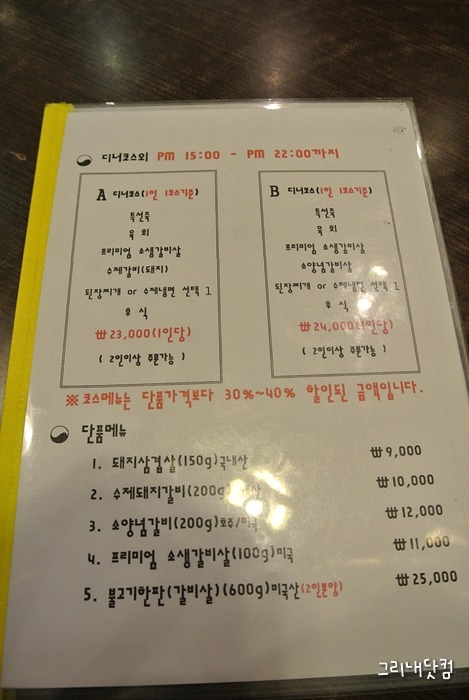 디너코스외 PM 15:00 - PM 22:00까지
A 디너코스(1인 1코스기준)
특선죽
육 회
프리미엄 소생갈비살
수제갈비(돼지)
된장찌개 or 수제냉면 선택 1
후 식
₩23,000(1인당)
( 2인이상 주문가능 )
B 디너코스(1인 1코스기준)
특선죽
육 회
프리미엄 소생갈비살
소양념갈비살
된장찌개 or 수제냉면 선택 1
후 식
₩24,000(1인당)
( 2인이상 주문가능 )
※ 코스메뉴는 단품가격보다 30%~40% 할인된 금액입니다.
단품메뉴
1. 돼지삼겹살(150g)국내산 ₩9,000
2. 수제돼지갈비(200g) ₩10,000
3. 소양념갈비(200g)호주/미국 ₩12,000
4. 프리미엄 소생갈비살(100g)미국 ₩11,000
5. 불고기한판(갈비살)(600g)미국산(2인분양) ₩25,000
그리내닷컴